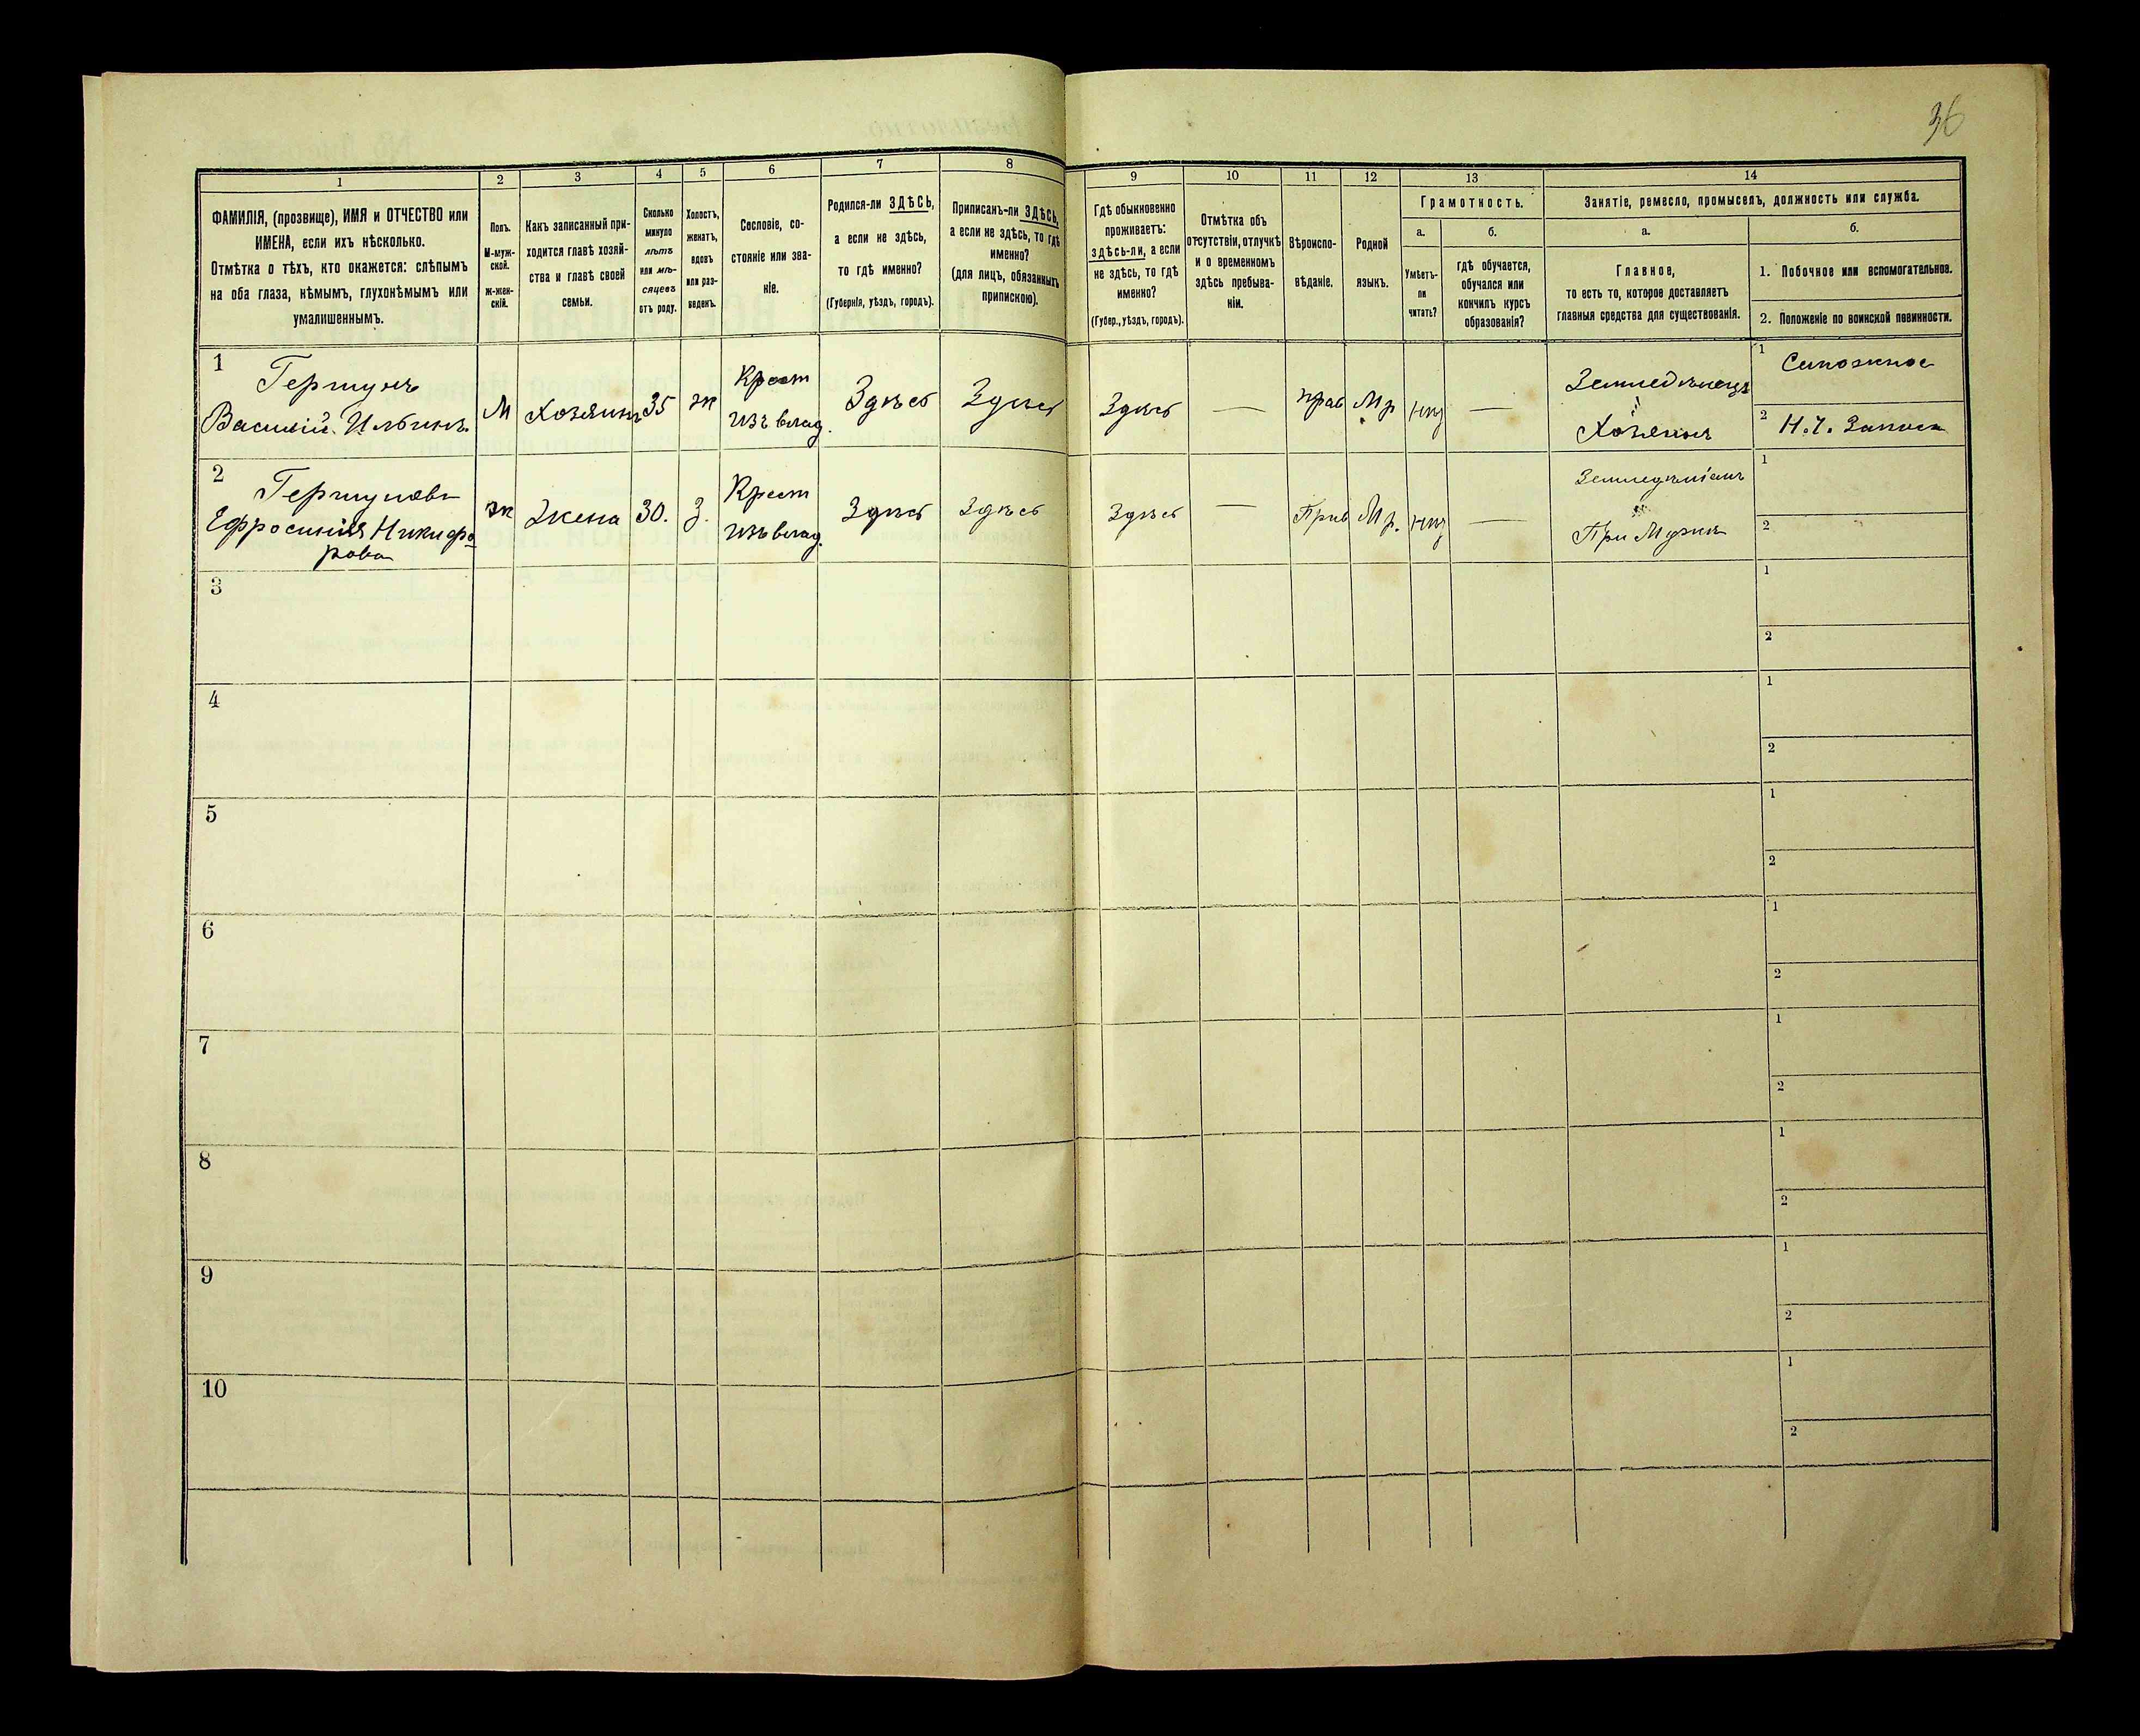 36
1
2
3
4
5
6
7
8
9
10
11
12
13
14
ФАМИЛІЯ, (прозвище), ИМЯ и ОТЧЕСТВО или
ИМЕНА, если ихъ нѣсколько.
Отмѣтка о тѣхъ, кто окажется: слѣпымъ
на оба глаза, нѣмымъ, глухонѣмымъ или
умалишеннымъ.
Полъ.
М-муж-
ской.
Ж-жен-
скій.
Какъ записанный при-
ходится главѣ хозяй-
ства и главѣ своей
семьи.
Сколько
минуло
лѣтъ
или мѣ-
сяцевъ
отъ роду.
Холостъ,
женатъ,
вдовъ
или раз-
веденъ.
Сословіе, со-
стояніе или зва-
ніе.
Родился-ли ЗДѢСЬ,
а если не здѣсь,
то гдѣ именно?
(Губернія, уѣздъ, городъ).
Приписанъ-ли ЗДѢСЬ,
а если не здѣсь, то гдѣ
именно?
(для лицъ, обязанныхъ
припискою).
Гдѣ обыкновенно
проживаетъ:
здѣсь-ли, а если
не здѣсь, то гдѣ
именно?
(Губер., уѣздъ, городъ).
Отмѣтка объ
отсутствіи, отлучкѣ
и о временномъ
здѣсь пребыва-
ніи.
Вѣроиспо-
вѣданіе.
Родной
языкъ.
Грамотность.
а.
Умѣетъ-
ли
читать?
б.
гдѣ обучается,
обучался или
кончилъ курсъ
образованія?
Занятіе, ремесло, промыселъ, должность или служба.
а.
Главное,
то есть то, которое доставляетъ
главныя средства для существованія.
б.
1. Побочное или вспомогательное.
2. Положеніе по воинской повинности.
1
Гершунъ
Василій Ильинъ
М
Хозяинъ
35
ж
Крест
изъ влад.
Здѣсь
Здѣсь
Здѣсь
—
прав
Мр
нѣт
—
Земледѣлецъ
Хозяинъ
1
Сапожное
2
Н.Ч. Запаса
2
Гершунова
Ефросинія Никифо
рова
ж
Жена
30.
З.
Крест
изъ влад.
Здѣсь
Здѣсь
Здѣсь
—
Прав
Мр.
нѣт
—
При Мужѣ
1
2
3
1
2
4
1
2
5
1
2
6
1
2
7
1
2
8
1
2
9
1
2
10
1
2